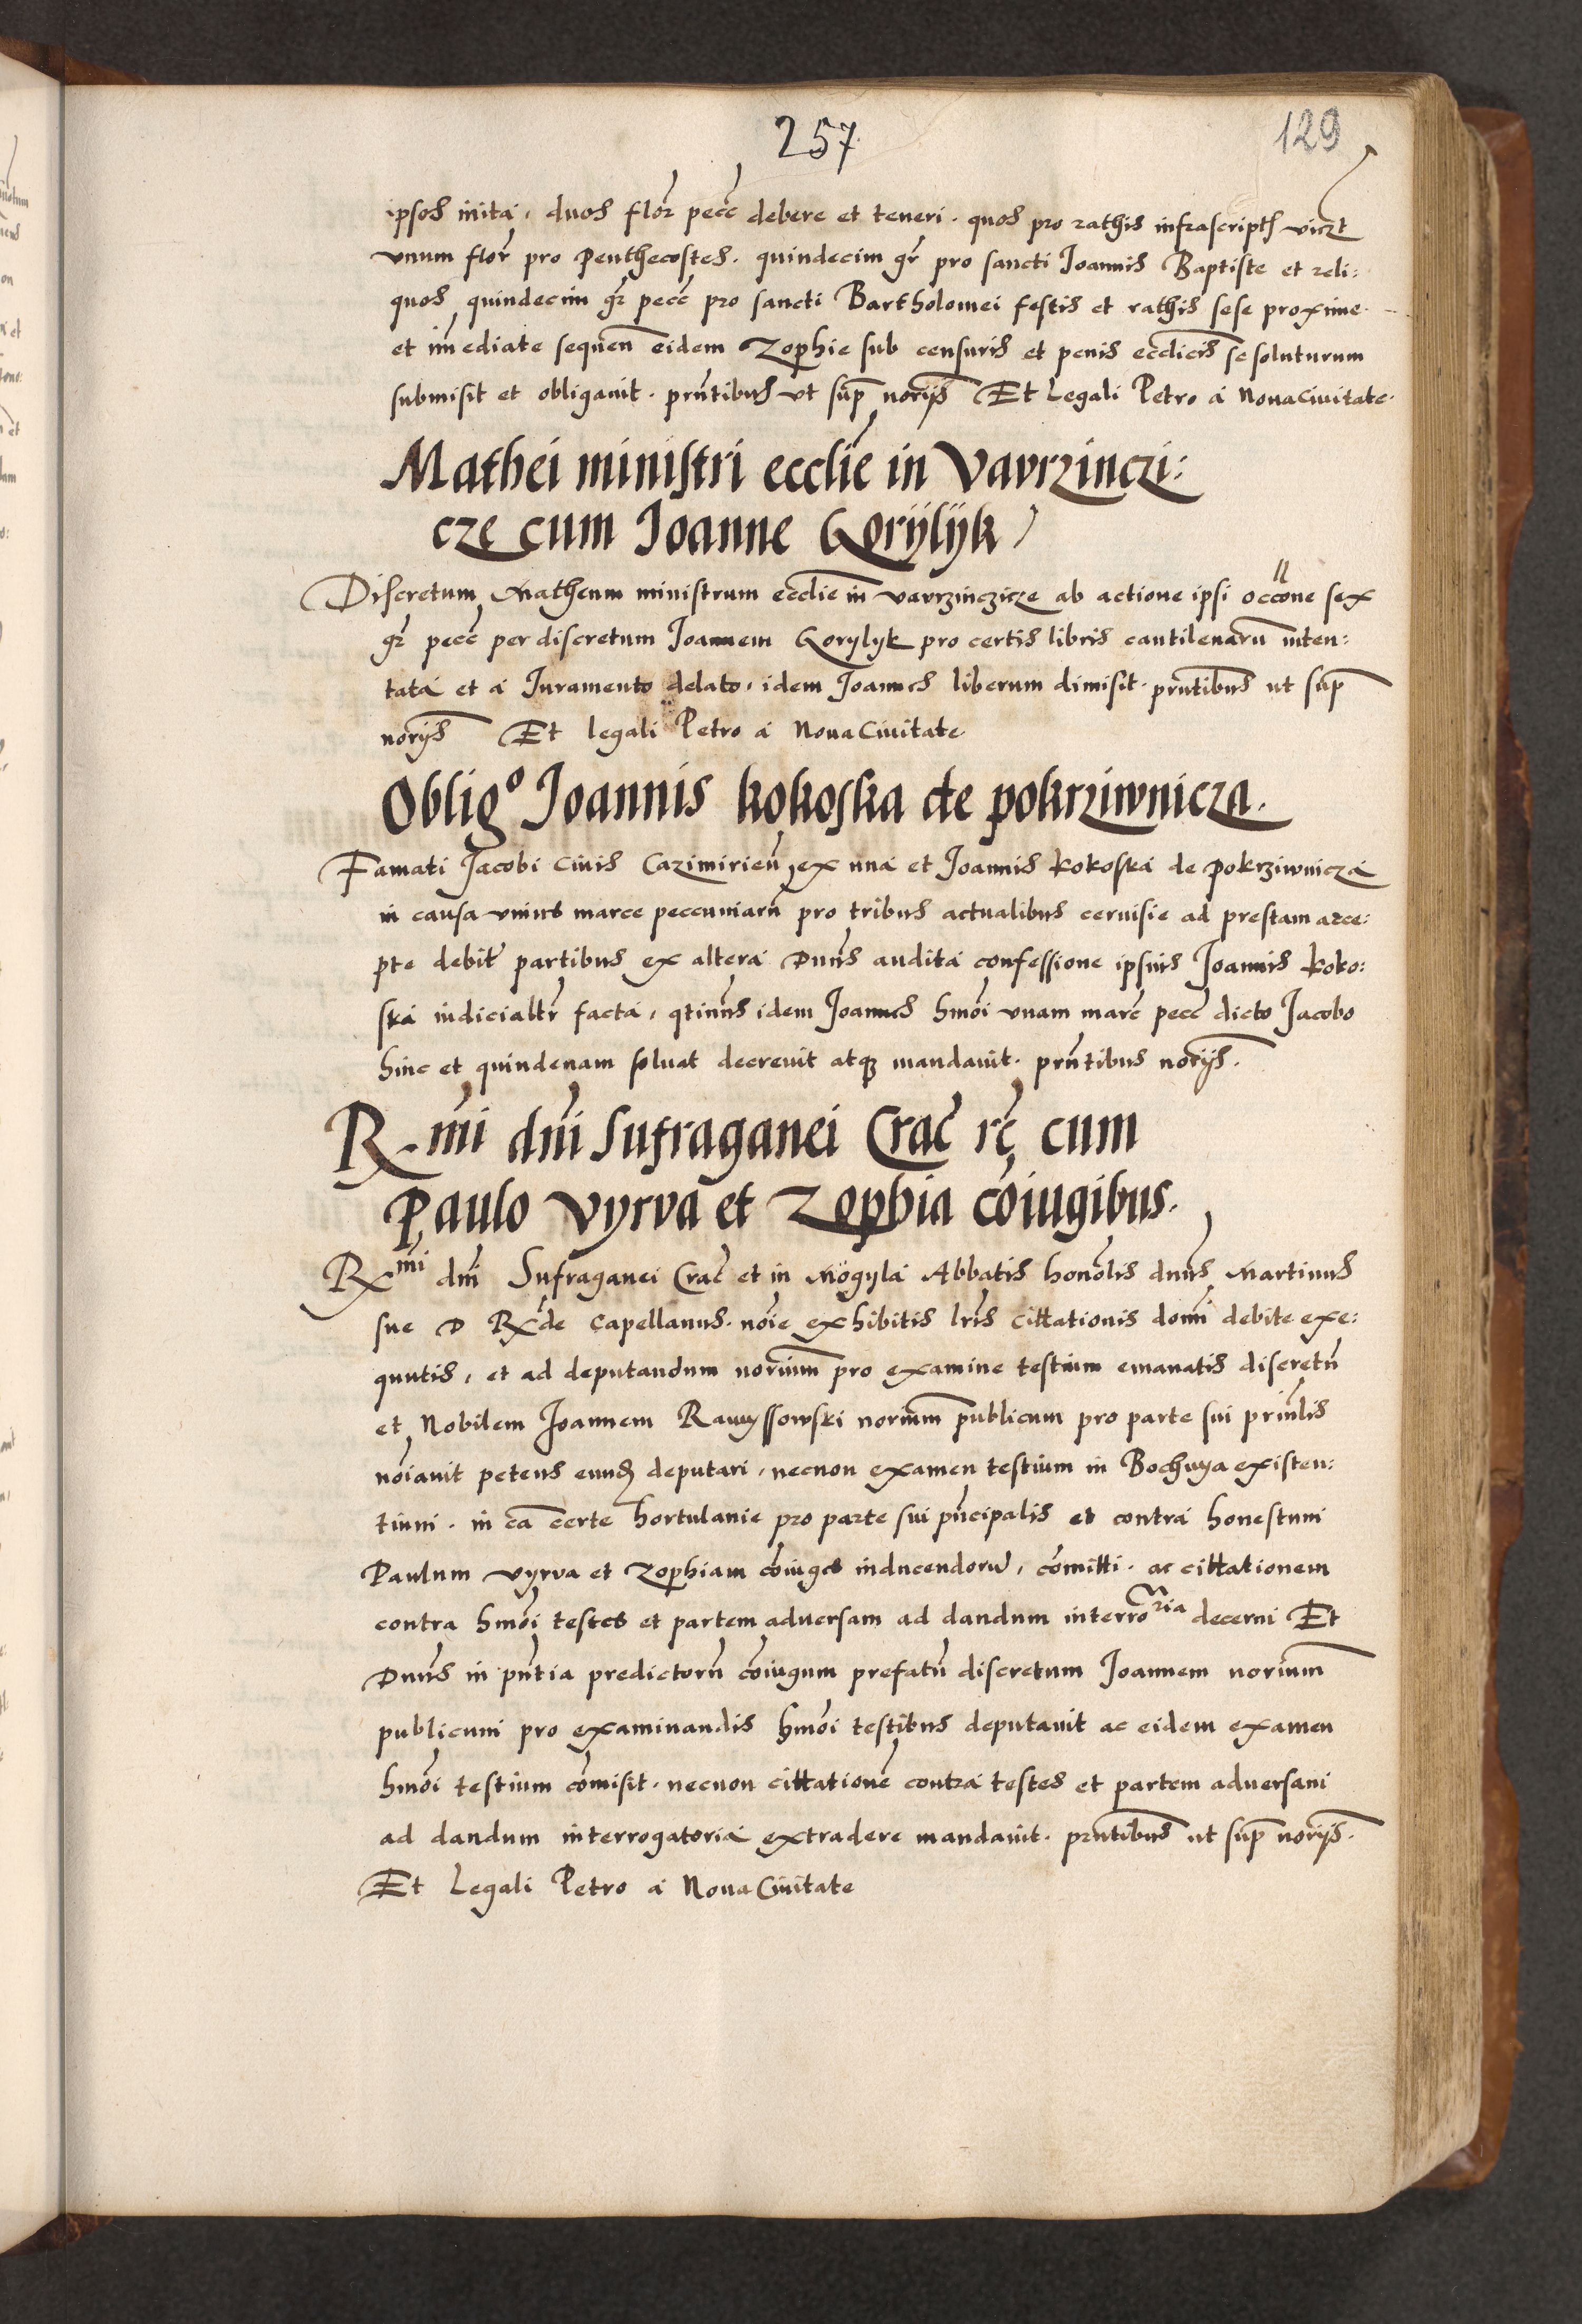 257
129
ipsos inita, duos flor pecc debere et teneri. quos pro rathis infrascriptis viczt
vnum flor pro Penthecostes. quindecim gr pro sancti Joannis Baptiste et reli:
quos quindecim gr pecc pro sancti Bartholomei festis et rathis sese proxime
et imediate sequen eidem Zophie sub censuris et penis ecclicis se soluturum
submisit et obligauit. pntibus vt sup norijs Et Legali Petro a NouaCiuitate.
Mathei ministri ecclie in Vavrzinczi:
cze cum Joanne Gorÿlÿk
Discretum Matheum ministrum ecclie in vavrzinczicze ab actione ipsi occone sex
gr pecc per discretum Joannem Gorylyk pro certis libris cantilenaru inten:
tata et a Juramento delato, idem Joannes liberum dimisit. pntibus ut sup
norijs Et legali Petro a NouaCiuitate
Obligo Joannis kokoska de pokrziwnicza.
Famati Jacobi Ciuis Cazimirien ex una et Joannis kokoska de pokrziwnicza
in causa vnius marce peccuniaru pro tribus actualibus ceruisie ad prestam acce:
pte debit partibus ex altera Dnus audita confessione ipsius Joannis koko:
ska iudicialtr facta, qtinus idem Joannes hmoi vnam marc pecc dicto Jacobo
hinc et quindenam soluat decreuit atq mandauit. pntibus norijs.
R-mi dni Sufraganei Crac rc cum
Paulo vyrva et Zophia coiugibus.
Rx mi dni Sufraganei Crac et in Mogyla Abbatis honolis dnus Martinus
sue D Rxde Capellanus. noie exhibitis lris cittationis domi debite exe:
quutis, et ad deputandum norium pro examine testium emanatis discretu
et Nobilem Joannem Rawyssowski norium publicum pro parte sui prinlis
noiauit petens eund deputari, necnon examen testium in Bochnya existen:
tium. in ca certe hortulanie pro parte sui pncipalis et contra honestum
Paulum vyrva et Zophiam coiuges inducendoru, comitti. ac cittationem
contra hmoi testes et partem aduersam ad dandum interroria decerni Et
Dnus in pntia predictoru coiugum prefatu discretum Joannem norium
publicum pro examinandis hmoi testibus deputauit ac eidem examen
hmoi testium comisit. necnon cittatione contra testes et partem aduersam
ad dandum interrogatoria extradere mandauit. pntibus ut sup norijs.
Et Legali Petro a NouaCiuitate